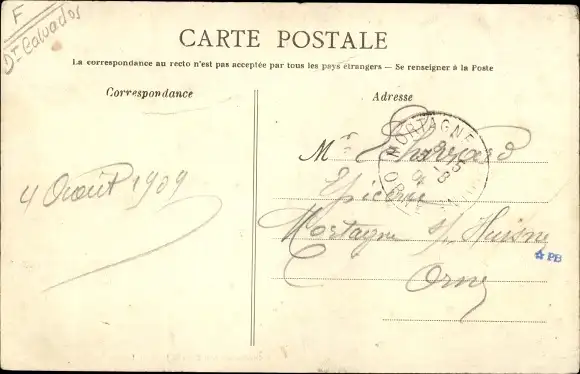 F
Dt Calvados
CARTE POSTALE
La correspondance au recto n'est pas acceptée par tous les pays étrangers — Se renseigner à la Poste
Correspondance
Adresse
MORTAGNE
Mr
4 Août 1909
Epicerie
Mortagne s/ Huisne
PB
Orne